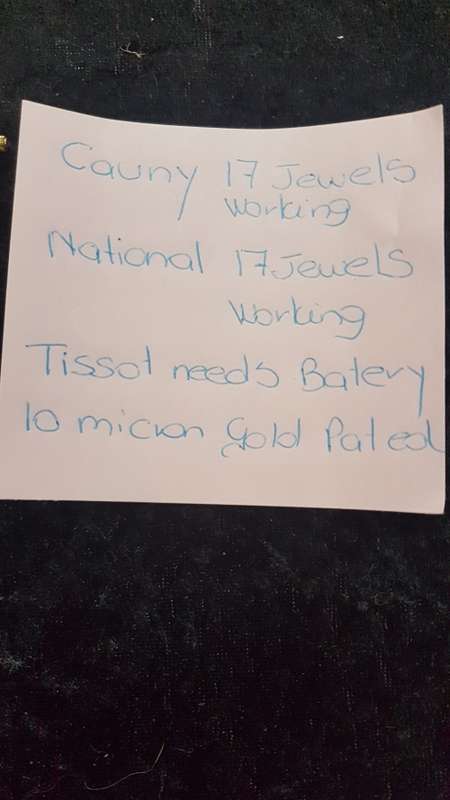 Cauny 17 Jewels
working
National 17 Jewels
working
Tissot needs Batery
10 micron Gold Pated